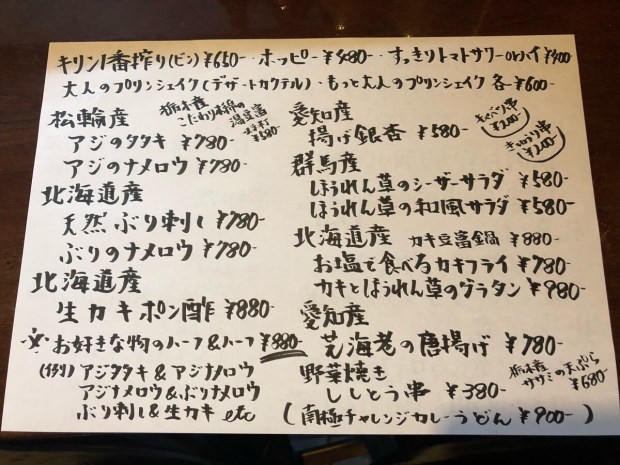 キリン一番搾り(ビン)¥650- ホッピー ¥480- すっきりトマトサワーorハイ ¥400
大人のプリンシェイク(デザートカクテル)・もっと大人のプリンシェイク 各¥600-
松輪産
アジのタタキ ¥780-
アジのナメロウ ¥780-
栃木産
こだわり木綿の
湯豆富
¥580-
北海道産
天然ぶり刺し ¥780-
ぶりのナメロウ ¥780-
北海道産
生カキポン酢 ¥880-
☆お好きな物のハーフ&ハーフ ¥880-
(例) アジタタキ & アジナメロウ
アジナメロウ & ぶりナメロウ
ぶり刺し & 生カキ etc
愛知産
揚げ銀杏 ¥580-
キャベツ串
¥200-
¥200-
群馬産
ほうれん草のシーザーサラダ ¥580-
ほうれん草の和風サラダ ¥580-
北海道産 カキ豆富鍋 ¥880-
お塩で食べるカキフライ ¥780-
カキとほうれん草のグラタン ¥980-
愛知産
芝海老の唐揚げ ¥780-
野菜焼き
ししとう串 ¥380-
栃木産
ササミの天ぷら
¥680-
(南極チャレンジカレーうどん ¥900-)